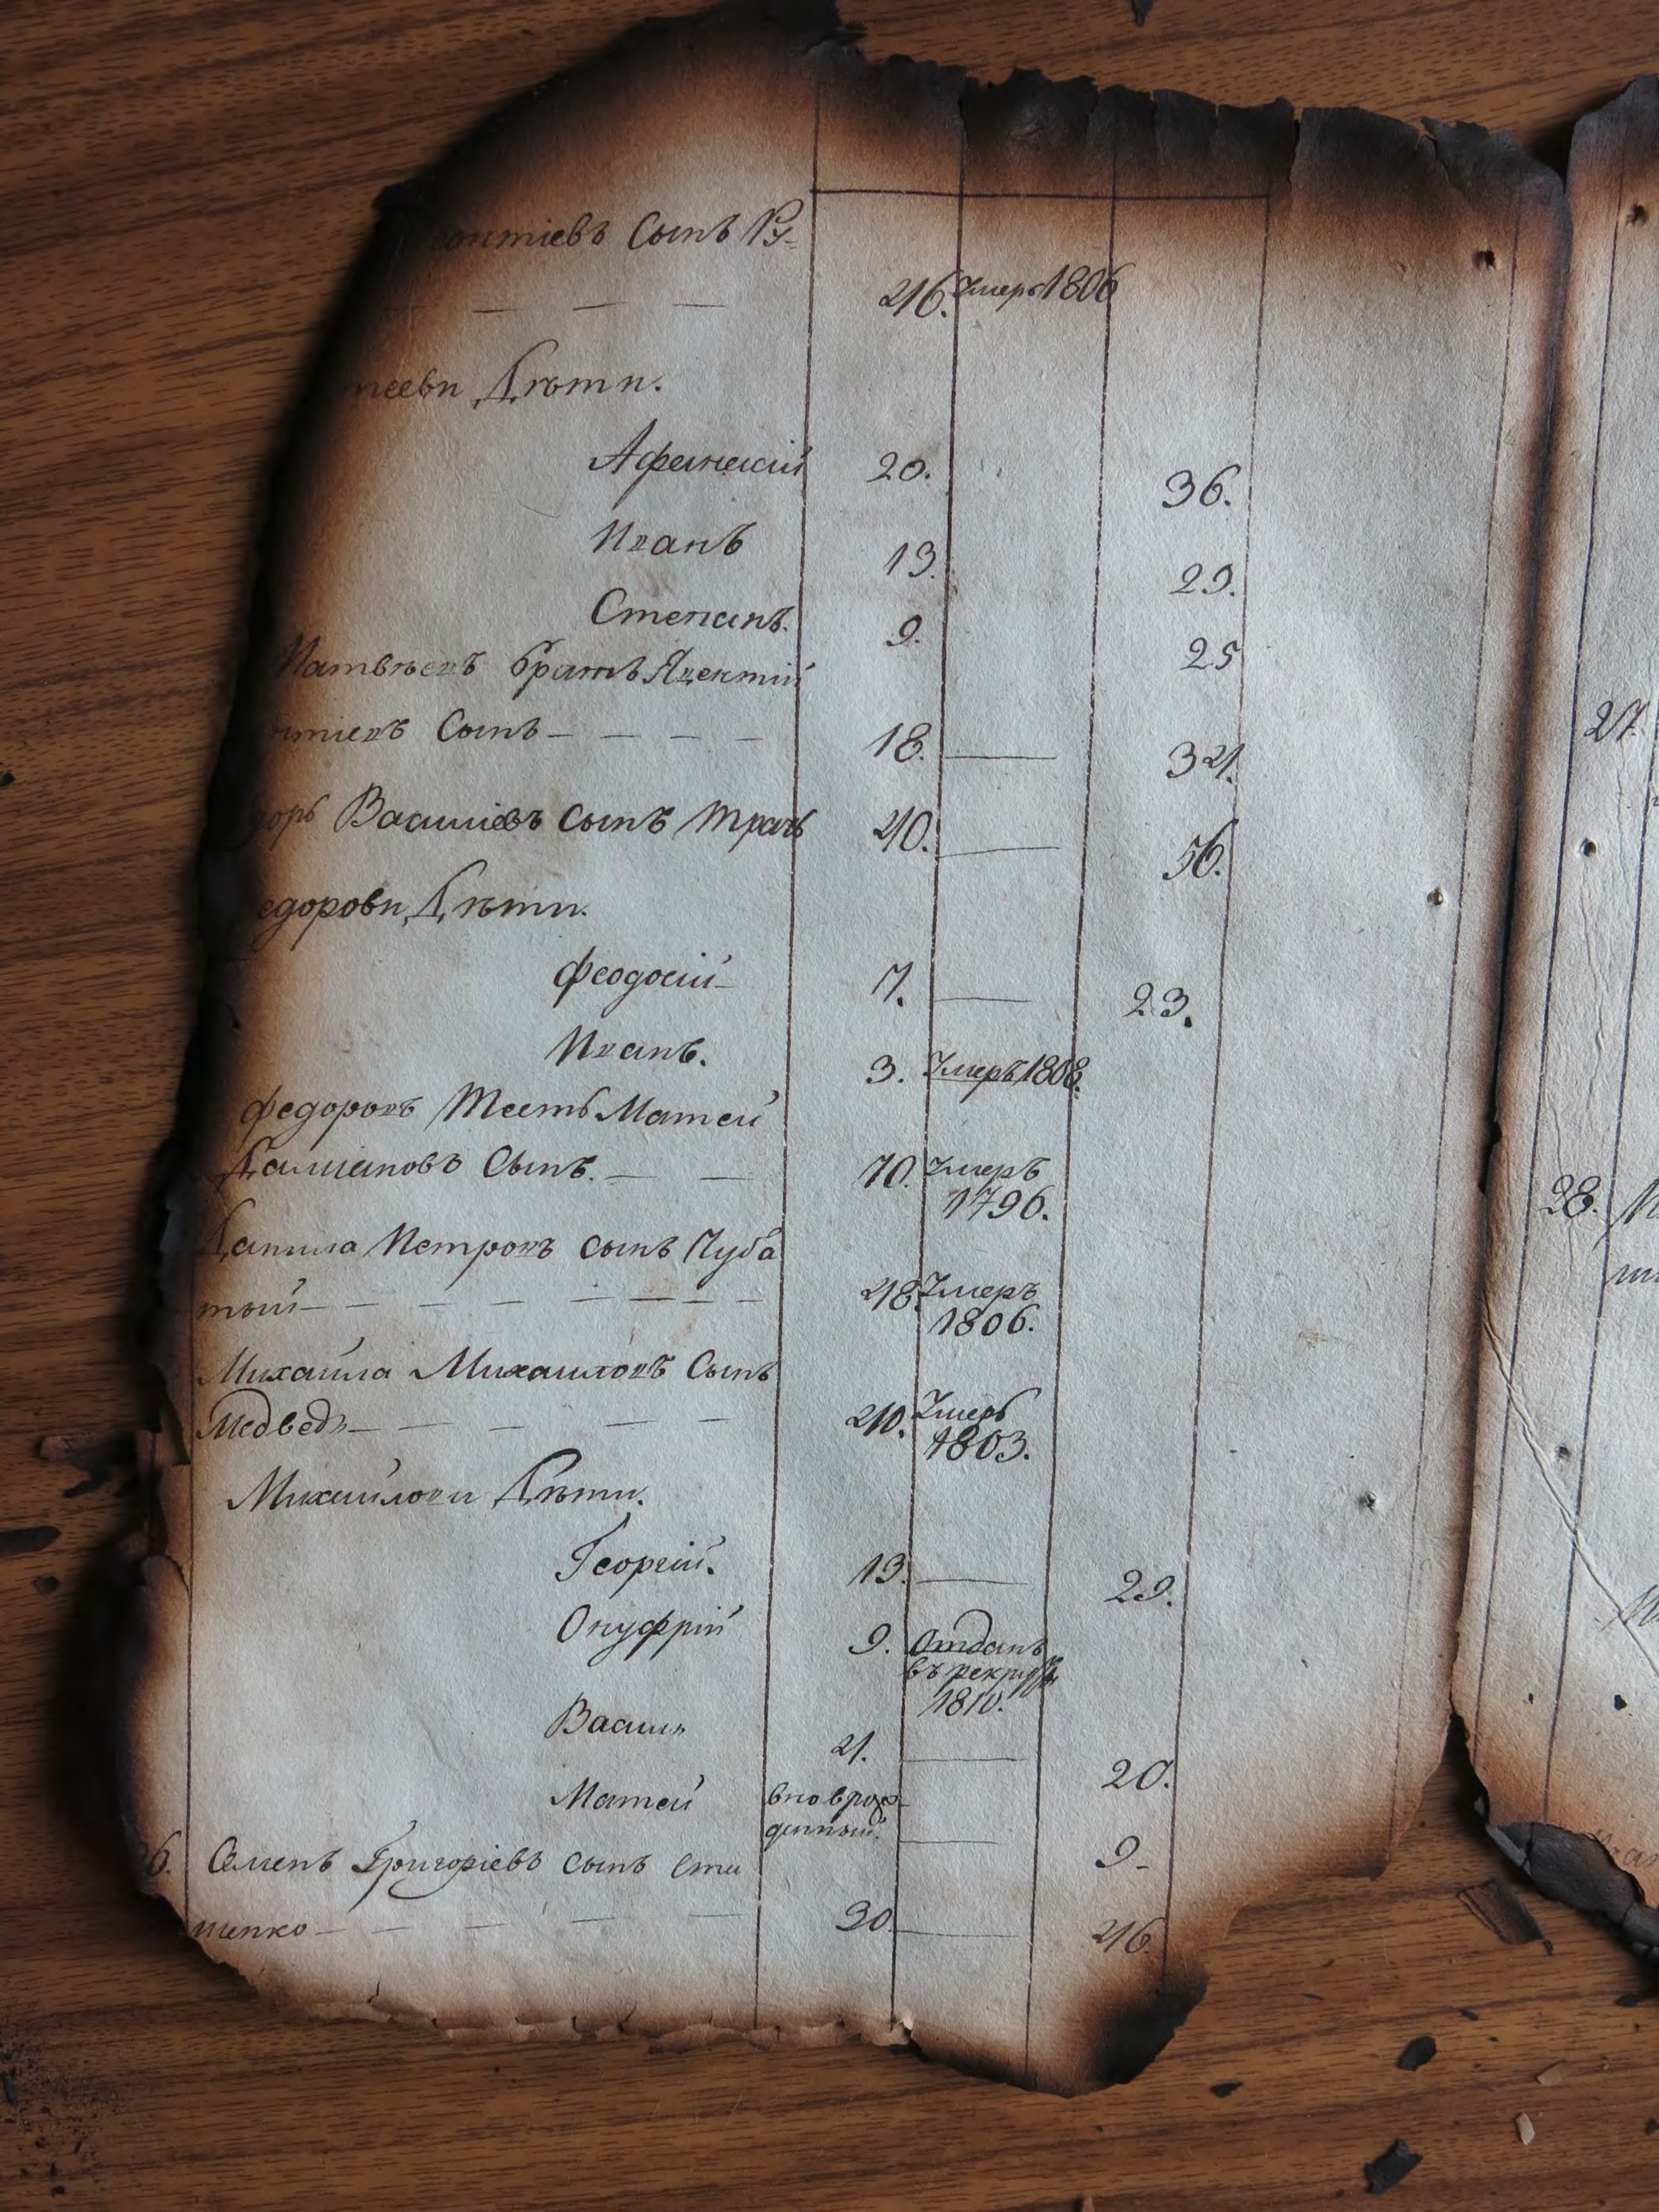 онтіевъ Сынъ Ру-
— — — 46. Умеръ 1806
теевы Дѣти.
Афанасій 20. 36.
Иванъ 13. 29.
Степанъ. 9. 25
Матвѣевъ братъ Авентій
нтіевъ Сынъ — — — — 18. — 34.
доръ Василіевъ сынъ Трачъ 40. — 56.
едоровы Дѣти.
Феодосій 7. — 23.
Иванъ. 3. Умеръ 1808.
Федоровъ Тесть Матей
Дамиановъ Сынъ. — — 70. Умеръ
1796.
Данила Петровъ сынъ Чуба
тый — — — — — — — 48. Умеръ
1806.
Михайла Михайловъ Сынъ
Медведь — — — — — 40. Умеръ
1803.
Михайловы Дѣти.
Георгій. 13. — 29.
Онуфрій 9. Отданъ
въ рекруты
1810.
Василь 4. — 20.
Матей вновьрож-
денный. — 9-
6. Семенъ Григоріевъ сынъ Сти
шенко — — — — — 30. — 46.
27.
28. М